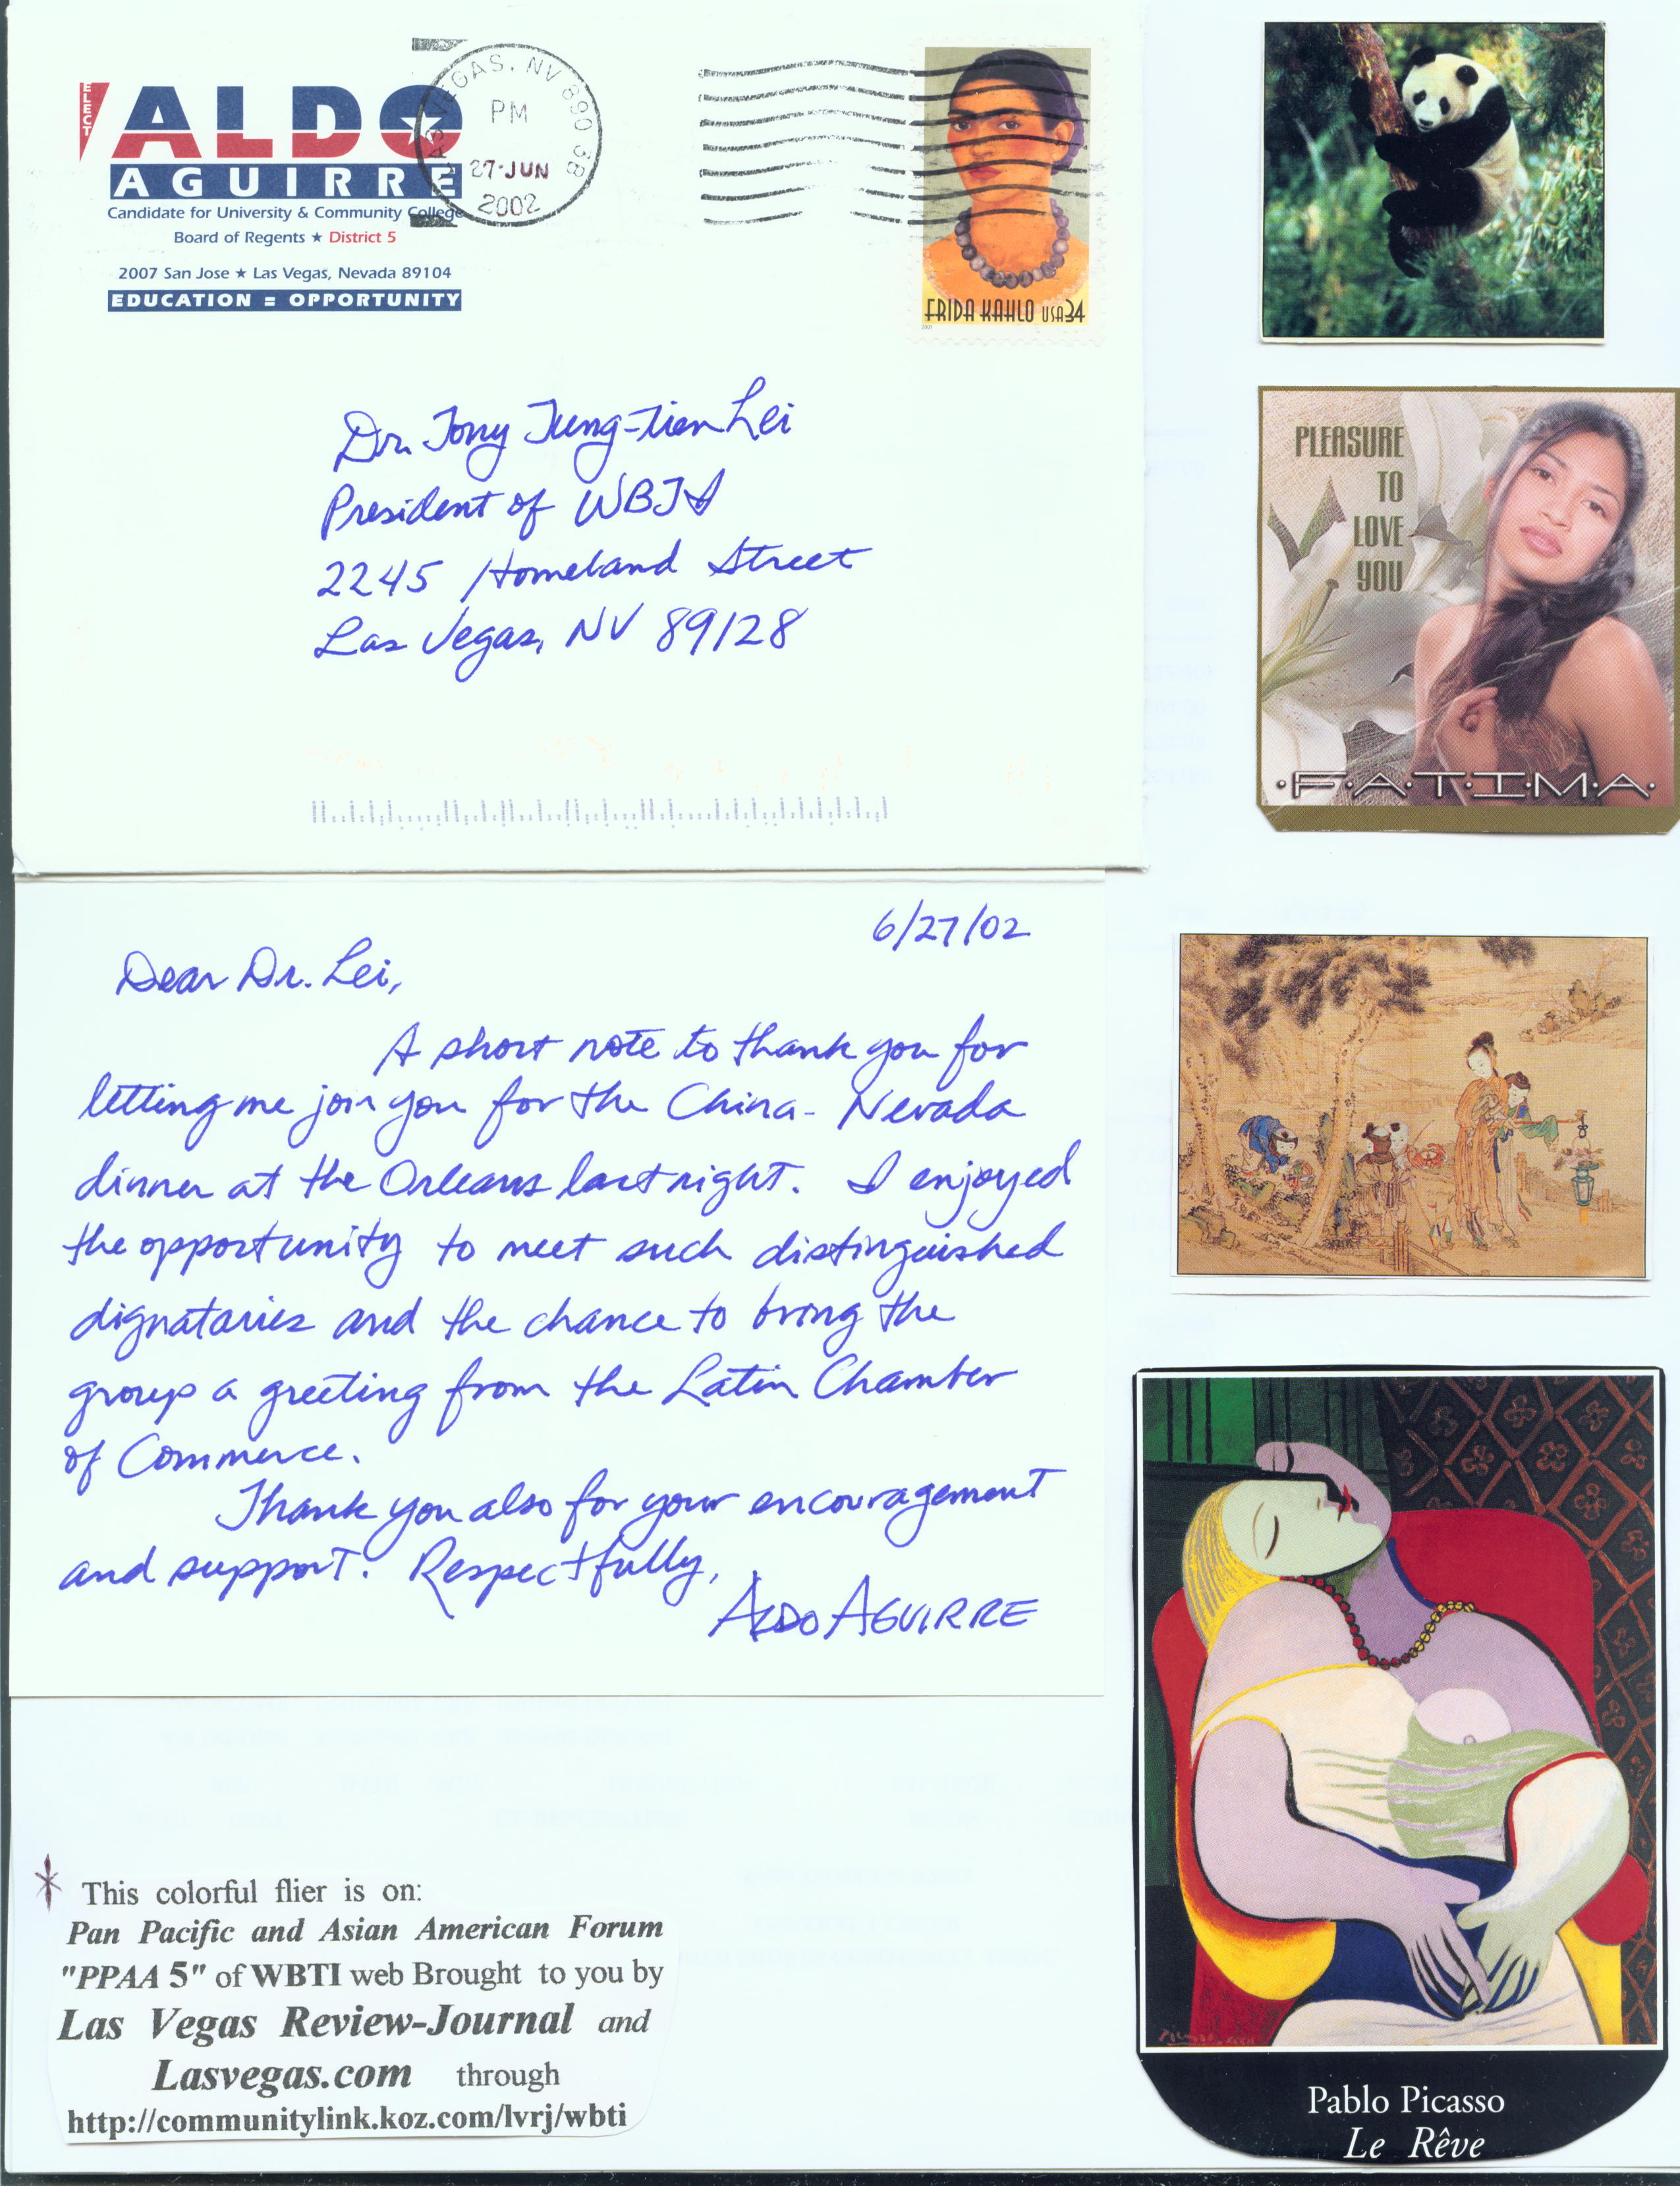 ELECT
ALDO
AGUIRRE
Candidate for University & Community College
Board of Regents ★ District 5
2007 San Jose ★ Las Vegas, Nevada 89104
EDUCATION = OPPORTUNITY
LAS VEGAS, NV 890 3B
PM
27-JUN
2002
FRIDA KAHLO USA34
2001
Dr. Tony Tung-tien Lei
President of WBTI
2245 Homeland Street
Las Vegas, NV 89128
PLEASURE
TO
LOVE
YOU
·F·A·T·I·M·A·
6/27/02
Dear Dr. Lei,
A short note to thank you for
letting me join you for the China-Nevada
dinner at the Orleans last night. I enjoyed
the opportunity to meet such distinguished
dignataries and the chance to bring the
group a greeting from the Latin Chamber
of Commerce.
Thank you also for your encouragement
and support. Respectfully,
ALDO AGUIRRE
* This colorful flier is on:
Pan Pacific and Asian American Forum
"PPAA 5" of WBTI web Brought to you by
Las Vegas Review-Journal and
Lasvegas.com through
http://communitylink.koz.com/lvrj/wbti
Picasso
Pablo Picasso
Le Rêve